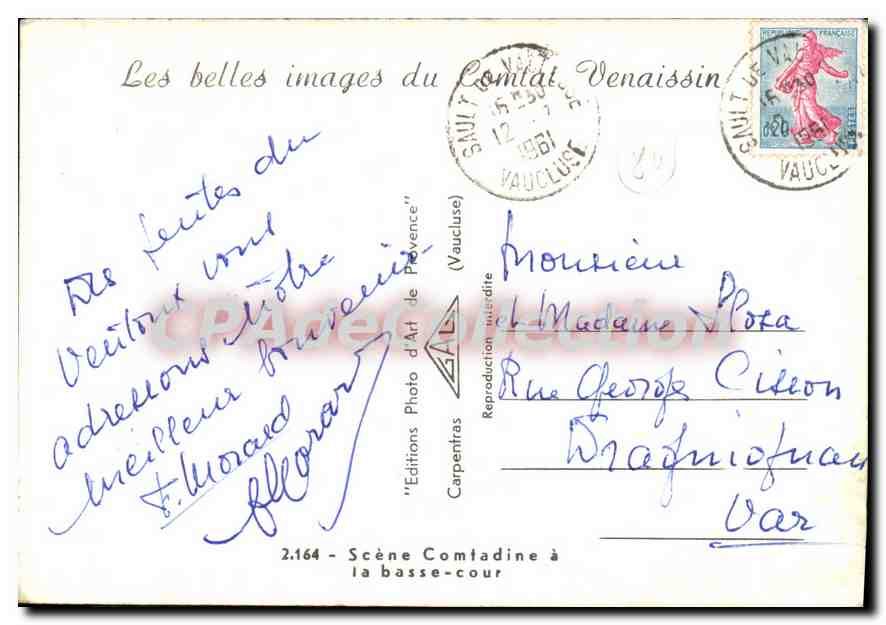 Les belles images du Comtat Venaissin
SAULT DE VAUCLUSE
16 H30
12
1961
VAUCLUSE
REPUBLIQUE FRANÇAISE
0,20
POSTES
SAULT DE VAUCLUSE
16 H30
1961
VAUCLUSE
Des pentes du
Ventoux vous
adressons Notre
meilleur Souvenir
F. Morard
FMorard
"Editions Photo d'Art de Provence"
Carpentras GAL (Vaucluse)
Reproduction interdite
Monsieur
et Madame
Rue Georges Cisson
Draguignan
Var
2.164 - Scène Comtadine à
la basse-cour
CPAdeCollection